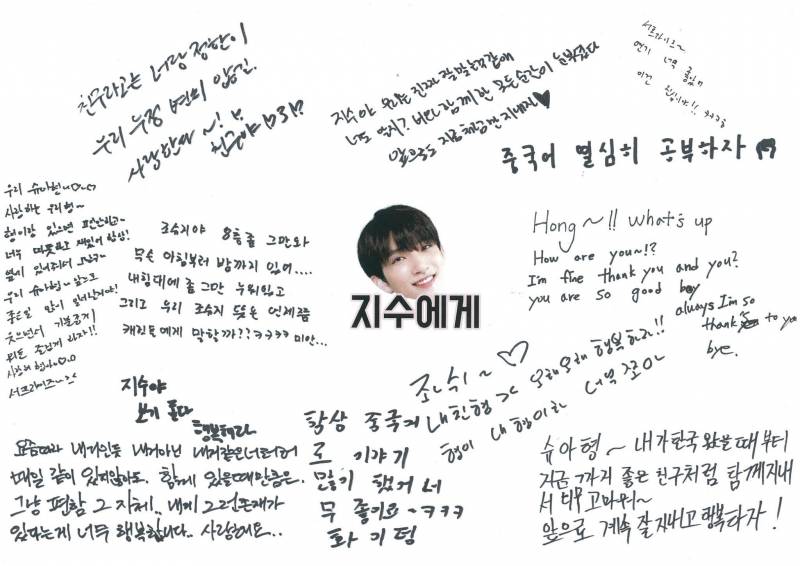 친구라고는 너랑 정한이
우리 우정 변치 않길.
사랑한다~!
친구야
지수야 우리는 진짜 잘 맞는거 같애
너도 알지? 너와 함께한 모든 순간이 눈부셨다
앞으로도 지금처럼만 지내자♥
서프라이즈~
연기 너무 좋았어
이건 진심이야!! ㅋㅋㅋ
중국어 열심히 공부하자
우리 슈아형~
사랑하는 우리형~
형이랑 있으면 편안하고~
너무 따뜻하고 재밌어 항상!
옆에 있어줘서 고맙고~
우리 슈아형~ 앞으로
좋은일 많이 일어날거야!
웃으면서 기분좋게
뭐든 즐겁게 하자!!
사랑해 형아~
서프라이즈~
조슈지야 8층좀 그만와
무슨 아침부터 밤까지 있어....
내침대에 좀 그만 누워있고
그리고 우리 조슈지 닮은 언제쯤
캐럿들에게 말할까??ㅋㅋㅋㅋ 미안...
지수에게
Hong~!! What's up
How are you~!?
I'm fine thank you and you?
you are so good boy
always I'm so
thanks to you
bye.
조슈지~ ♡
내친형 >< 오래오래 행복하자!!
형이 내 형이라 너무 좋아~
지수야
보기 좋다
행복해라
요즘따라 내꺼인듯 내꺼아닌 내꺼같은너
매일 같이 있지않아도, 함께 있을때만큼은.
그냥 편함 그 자체.. 내게 그런존재가
있다는게 너무 행복합니다.. 사랑해요..
항상 중국거
로 이야기
많이 했거 너
무 좋아요~ㅋㅋㅋ
화이팅
슈아형~ 내가 한국 왔을때부터
지금까지 좋은 친구처럼 함께지내
서 너무 고마워~
앞으로 계속 잘 지내고 행복하자!